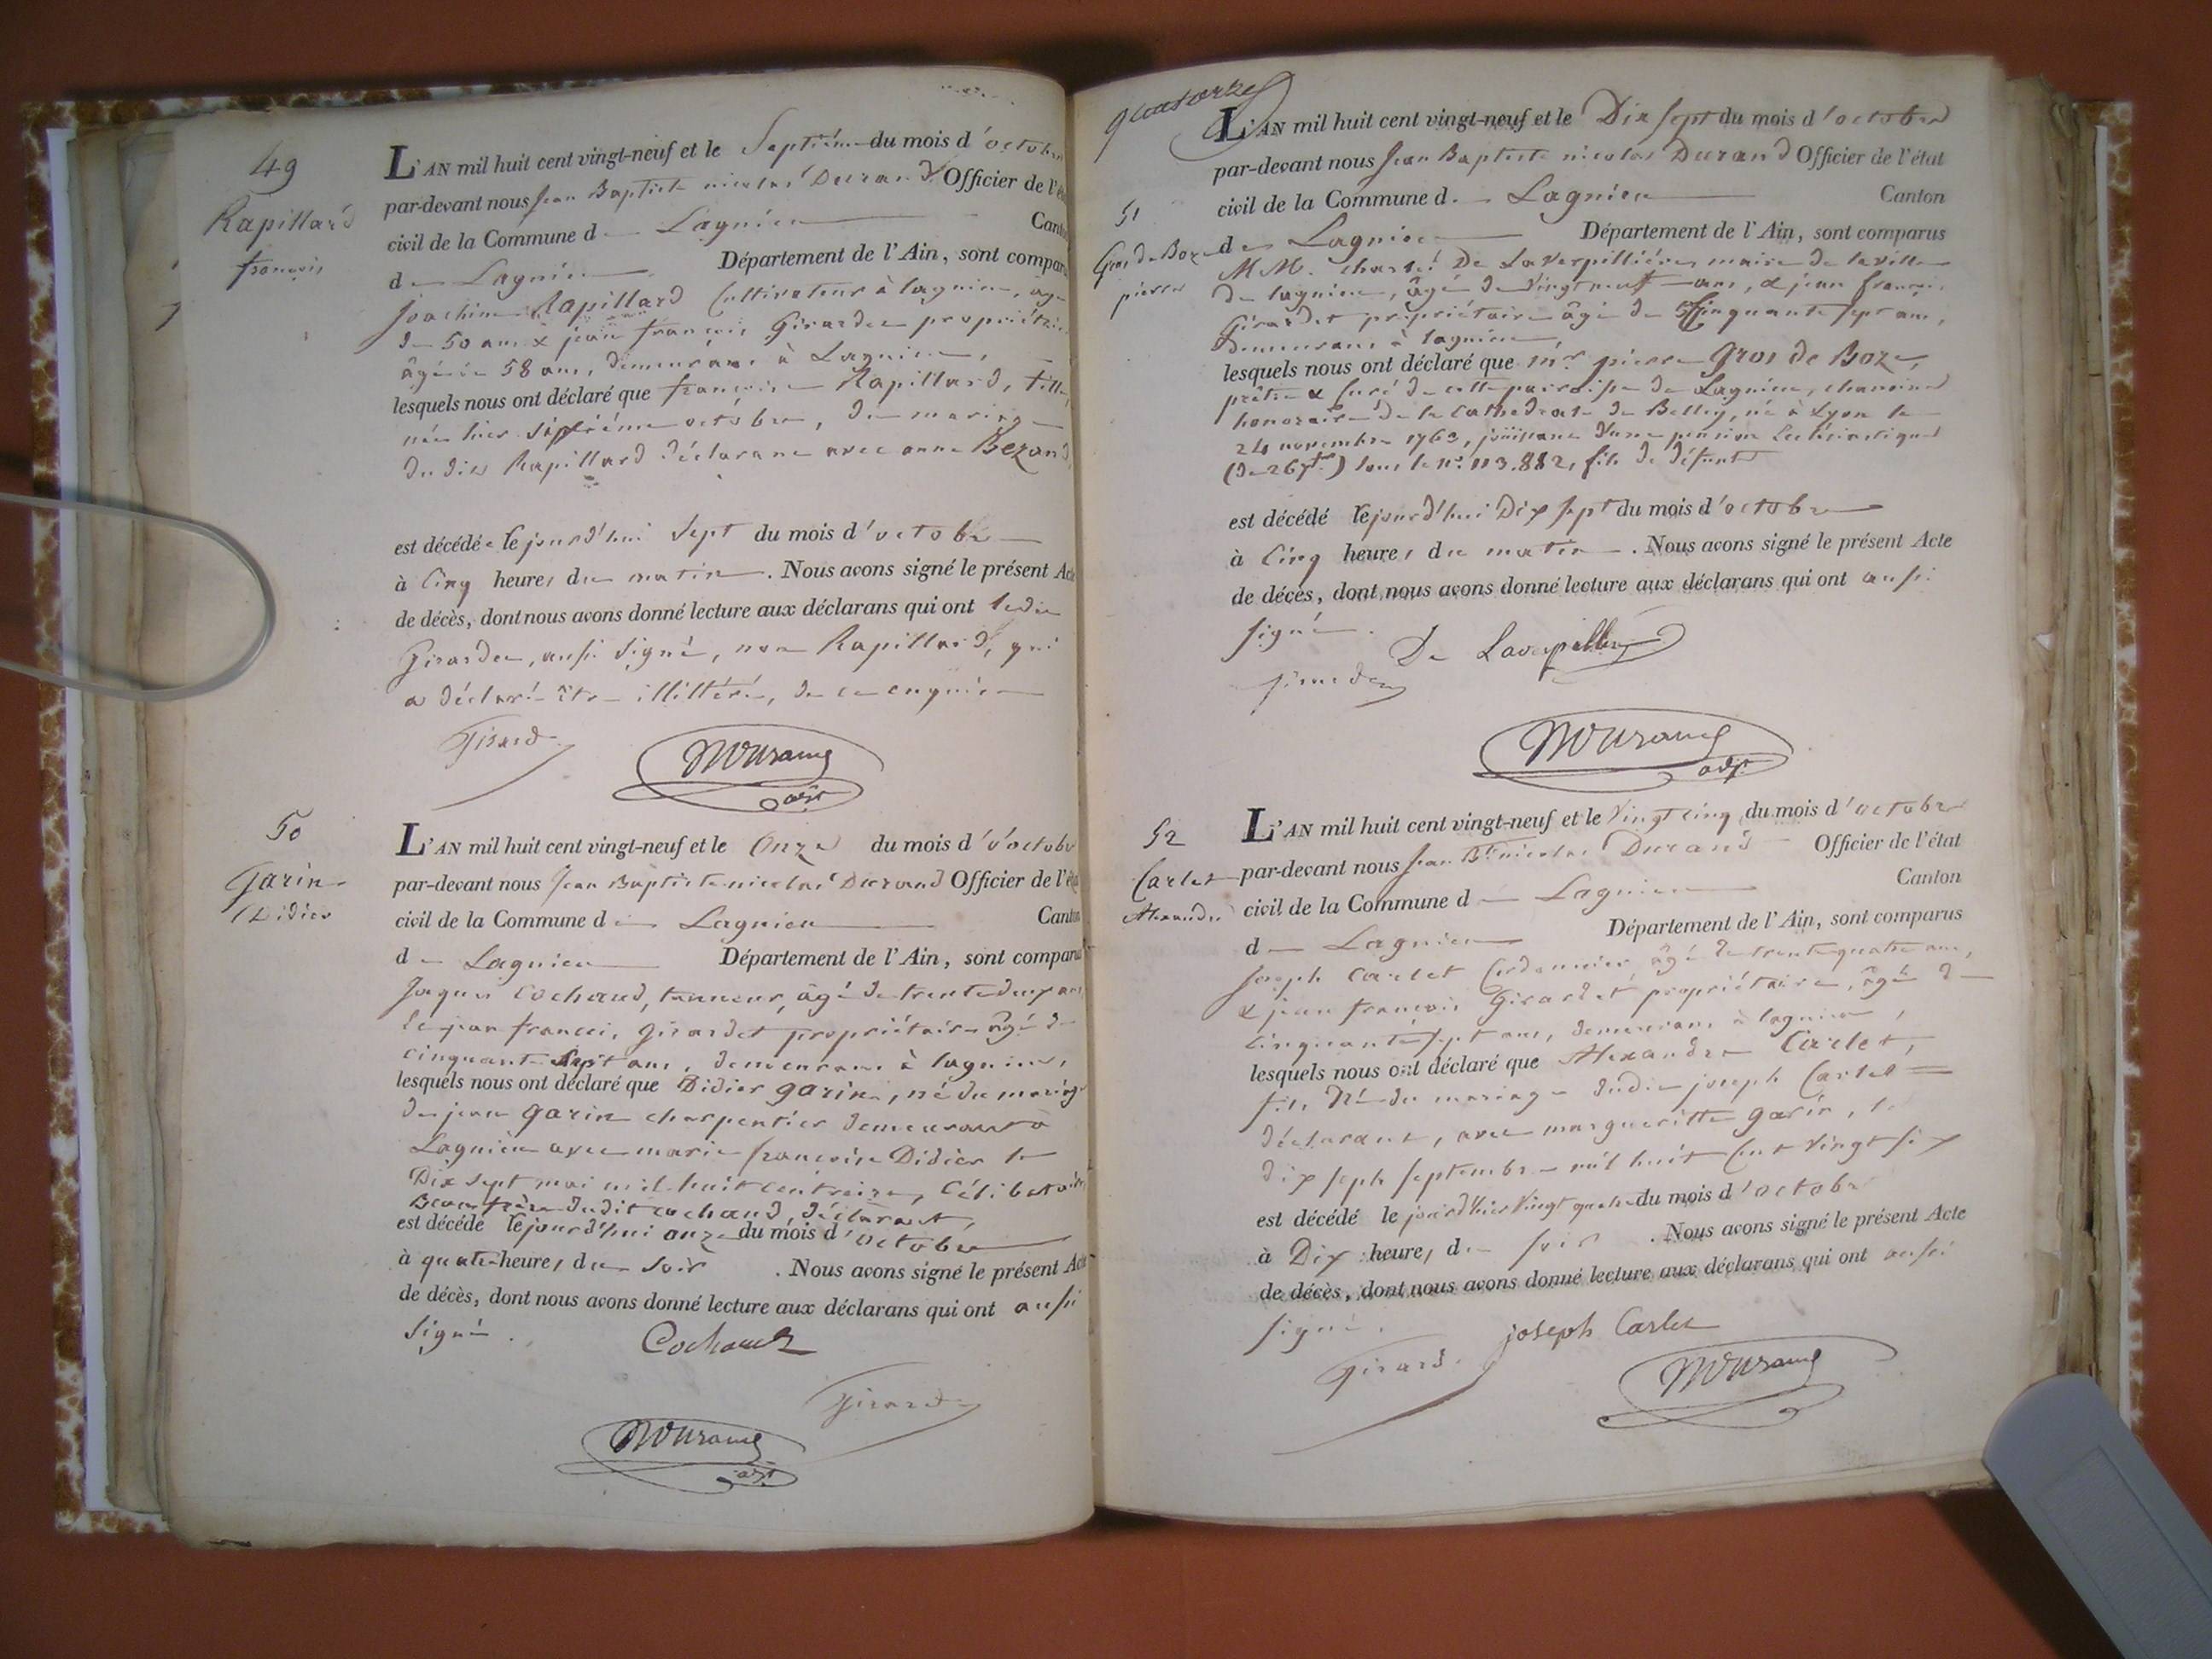 49
Rapillard
françoise
L'AN mil huit cent vingt-neuf et le Septième du mois d'octobre
par-devant nous Jean Baptiste nicolas Durand Officier de l'état
civil de la Commune de Lagnieu Canton
de Lagnieu Département de l'Ain, sont comparus
Joachim Rapillard Cultivateur à lagnieu, agé
de 50 ans & jean françois Girardet propriétaire
âgé de 58 ans, demeurans à Lagnieu,
lesquels nous ont déclaré que françoise Rapillard, fille,
née hier sixième octobre, du mariage
dudit Rapillard déclarant avec anne Bezand,
est décédée le jourd'hui Sept du mois d'octobre
à Cinq heures du matin. Nous avons signé le présent Acte
de décès, dont nous avons donné lecture aux déclarans qui ont ledit
Girardet, aussi signé, non Rapillard, qui
a déclaré être illittéré, de ce enquis
Girard
NDurand
adjt
50
Garin
Didier
L'AN mil huit cent vingt-neuf et le Onze du mois d'octobre
par-devant nous Jean Baptiste nicolas Durand Officier de l'état
civil de la Commune de Lagnieu Canton
de Lagnieu Département de l'Ain, sont comparus
Jaques Cochaud, tanneur, âgé de trente deux ans
& jean françois Girardet propriétaire âgé de
cinquante Sept ans, demeurans à lagnieu,
lesquels nous ont déclaré que Didier garin, né du mariage
de jean garin charpentier demeurant à
Lagnieu avec marie françoise Didier le
Dix sept mai mil huit cent treize, Célibataire,
Beau frère dudit cochaud, déclarant,
est décédé le jourd'hui onze du mois d'octobre
à quatre heures du soir. Nous avons signé le présent Acte
de décès, dont nous avons donné lecture aux déclarans qui ont aussi
Signé.
Cochaud
Girard
NDurand
adjt
quatorze
L'AN mil huit cent vingt-neuf et le Dix Sept du mois d'octobre
par-devant nous Jean Baptiste nicolas Durand Officier de l'état
civil de la Commune de Lagnieu Canton
51
Gros de Boze
pierre
de Lagnieu Département de l'Ain, sont comparus
MM. Charles De Laverpillière maire de la ville
de lagnieu, âgé de vingt neuf ans, & jean françois
Girardet propriétaire âgé de Cinquante sept ans,
demeurans à lagnieu
lesquels nous ont déclaré que mr. pierre Gros de Boze,
prêtre & Curé de cette paroisse de Lagnieu, chanoine
honoraire de la Cathédrale de Belley, né à Lyon le
24 novembre 1763, jouissant d'une pension Ecclésiastique
(de 267f) sous le no. 113.882, fils de défunt
est décédé le jourd'hui Dix sept du mois d'octobre
à Cinq heures du matin. Nous avons signé le présent Acte
de décès, dont nous avons donné lecture aux déclarans qui ont aussi
signé.
De Laverpillière
girardet
NDurand
adjt
52
Carlet
Alexandre
L'AN mil huit cent vingt-neuf et le Vingt cinq du mois d'octobre
par-devant nous Jean Bte nicolas Durand Officier de l'état
civil de la Commune de Lagnieu Canton
de Lagnieu Département de l'Ain, sont comparus
Joseph Carlet Cordonnier, âgé de trente quatre ans,
& jean françois Girardet propriétaire, âgé de
Cinquante sept ans, demeurans à lagnieu,
lesquels nous ont déclaré que Alexandre Carlet,
fils, Né du mariage dudit joseph Carlet
déclarant, avec margueritte garin, le
dix sept septembre mil huit cent vingt six
est décédé le jourd'hier Vingt quatre du mois d'octobre
à Dix heures du soir. Nous avons signé le présent Acte
de décès, dont nous avons donné lecture aux déclarans qui ont aussi
signé.
joseph Carlet
Girard
NDurand